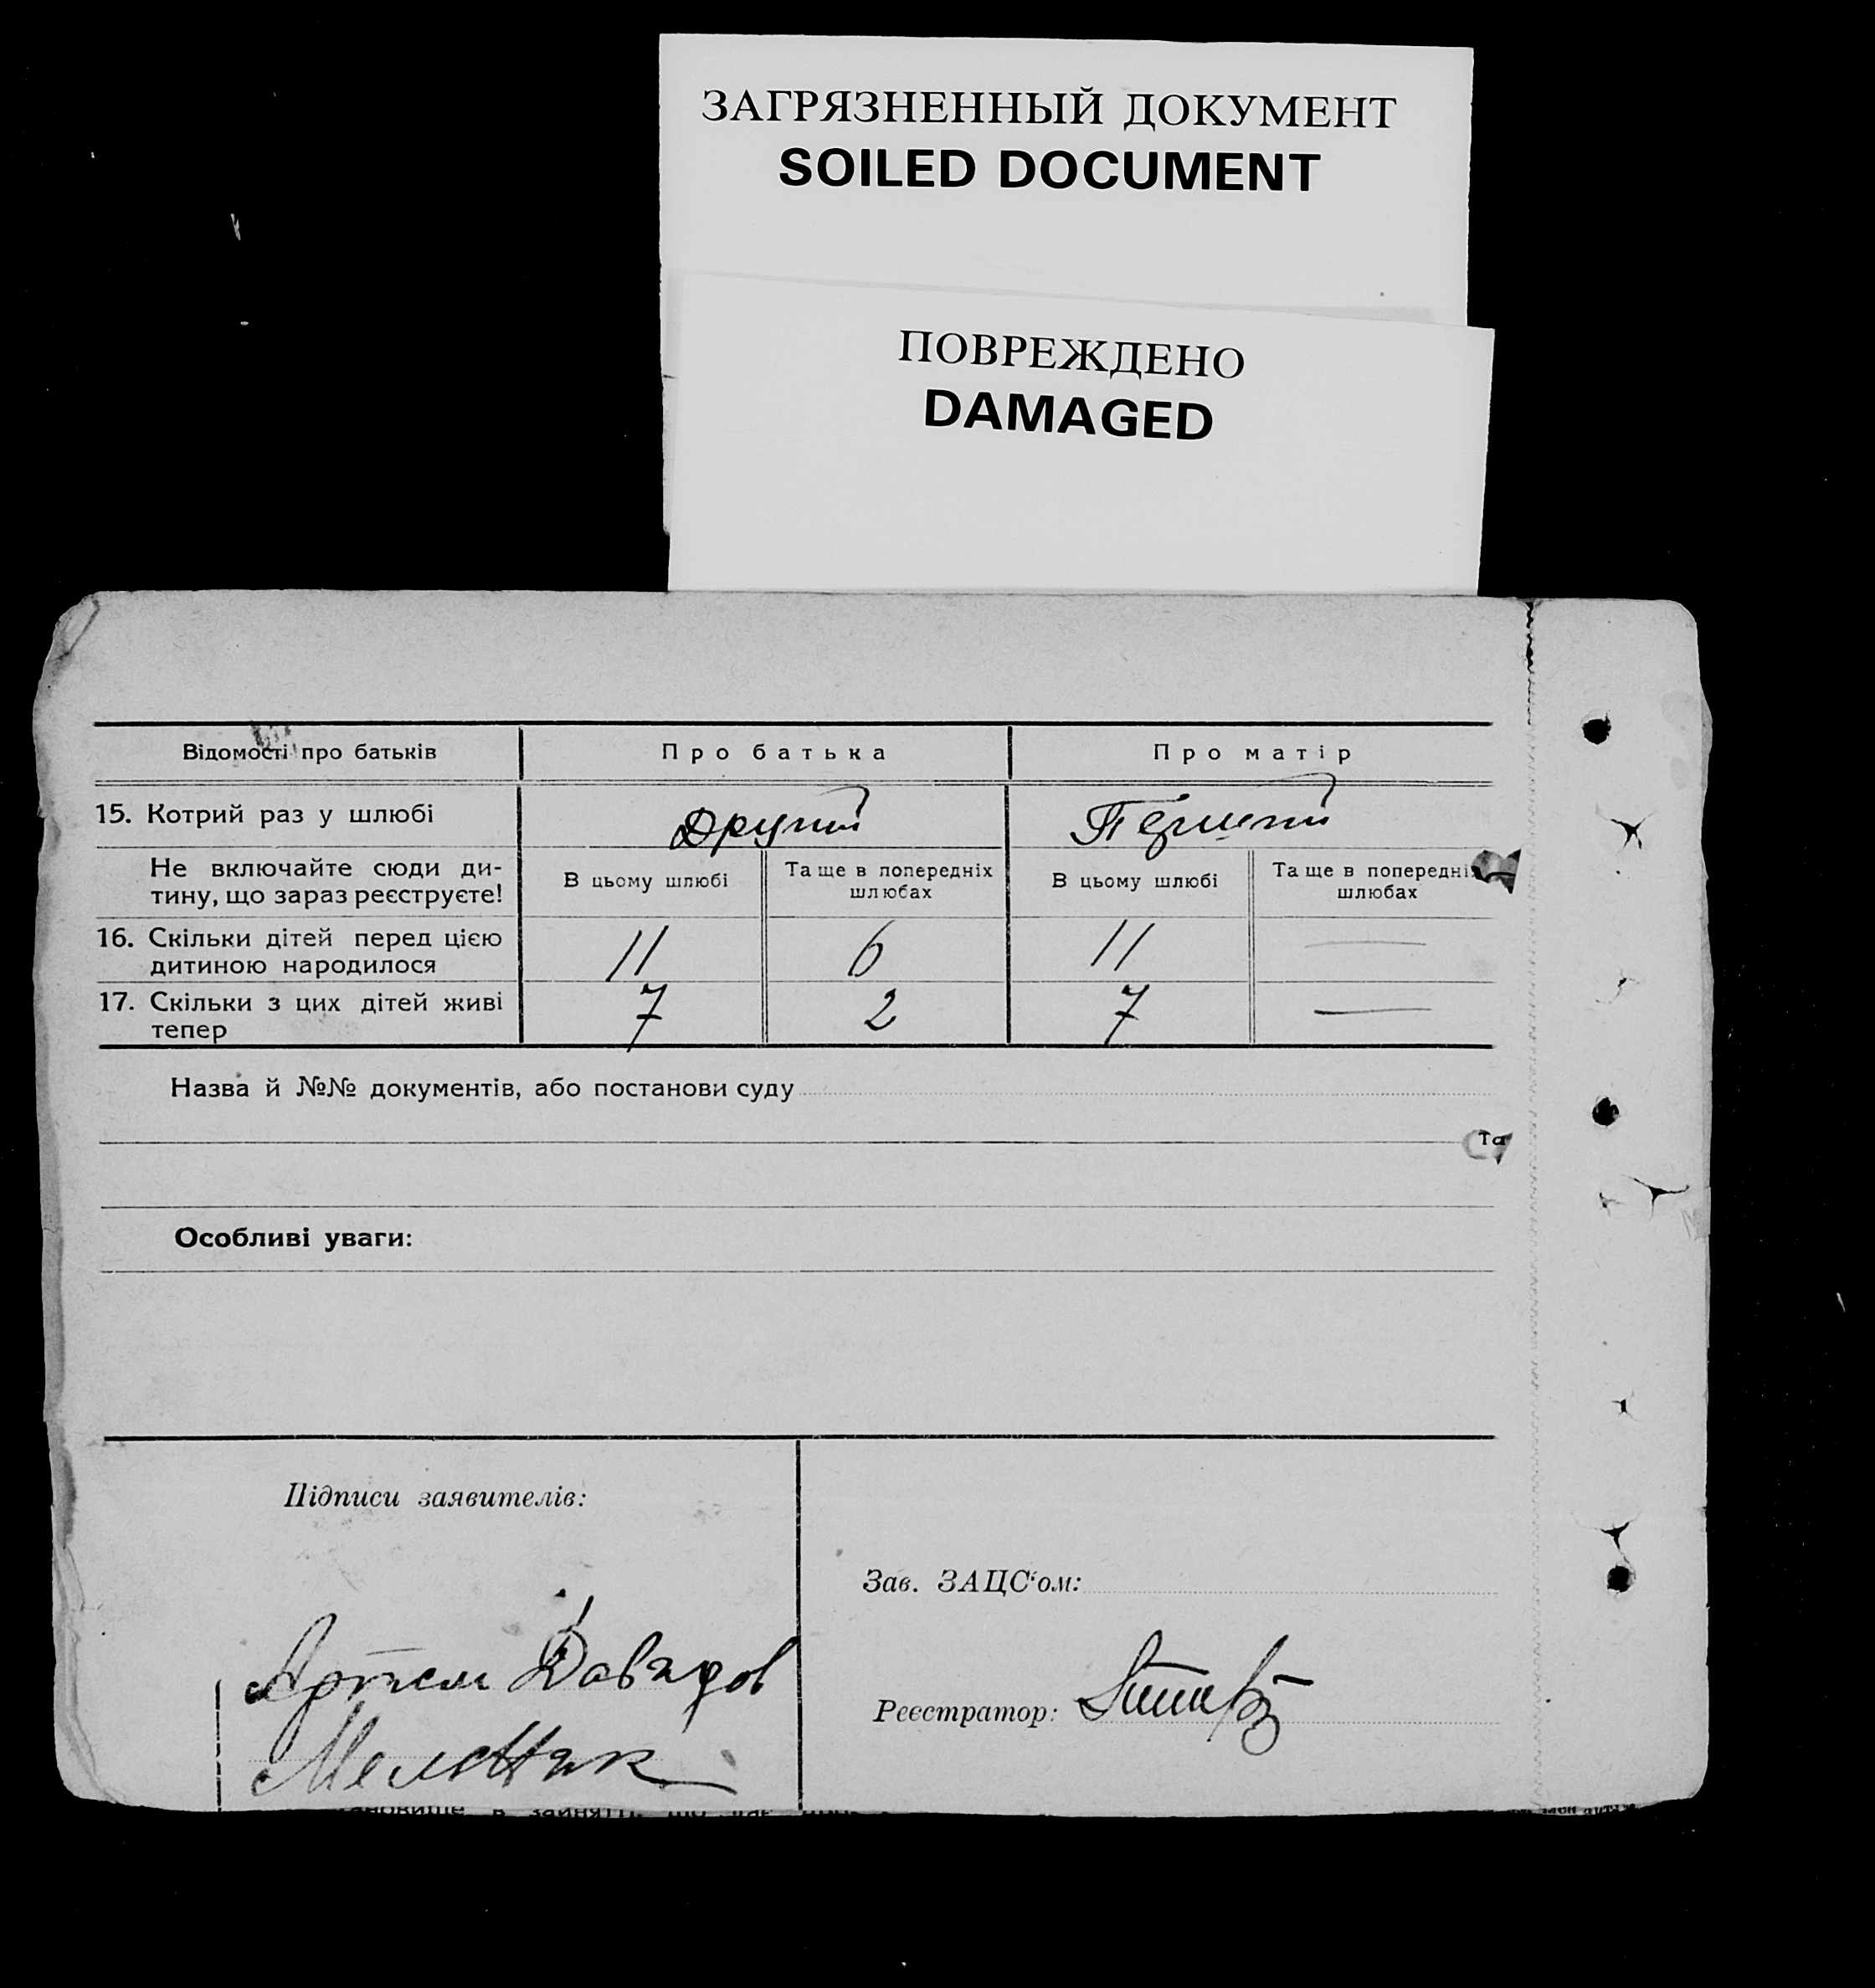 ЗАГРЯЗНЕННЫЙ ДОКУМЕНТ
SOILED DOCUMENT
ПОВРЕЖДЕНО
DAMAGED
Відомості про батьків Про батька Про матір
15. Котрий раз у шлюбі Другий Перший
Не включайте сюди ди-
тину, що зараз реєструєте!
В цьому шлюбі
Та ще в попередніх
шлюбах
В цьому шлюбі
Та ще в попередніх
шлюбах
16. Скільки дітей перед цією
дитиною народилося
11 6 11 —
17. Скільки з цих дітей живі
тепер
7 2 7 —
Назва й №№ документів, або постанови суду
Та
Особливі уваги:
Підписи заявителів:
Зав. ЗАЦС'ом:
Артем Давидов
Реєстратор:
Мельник